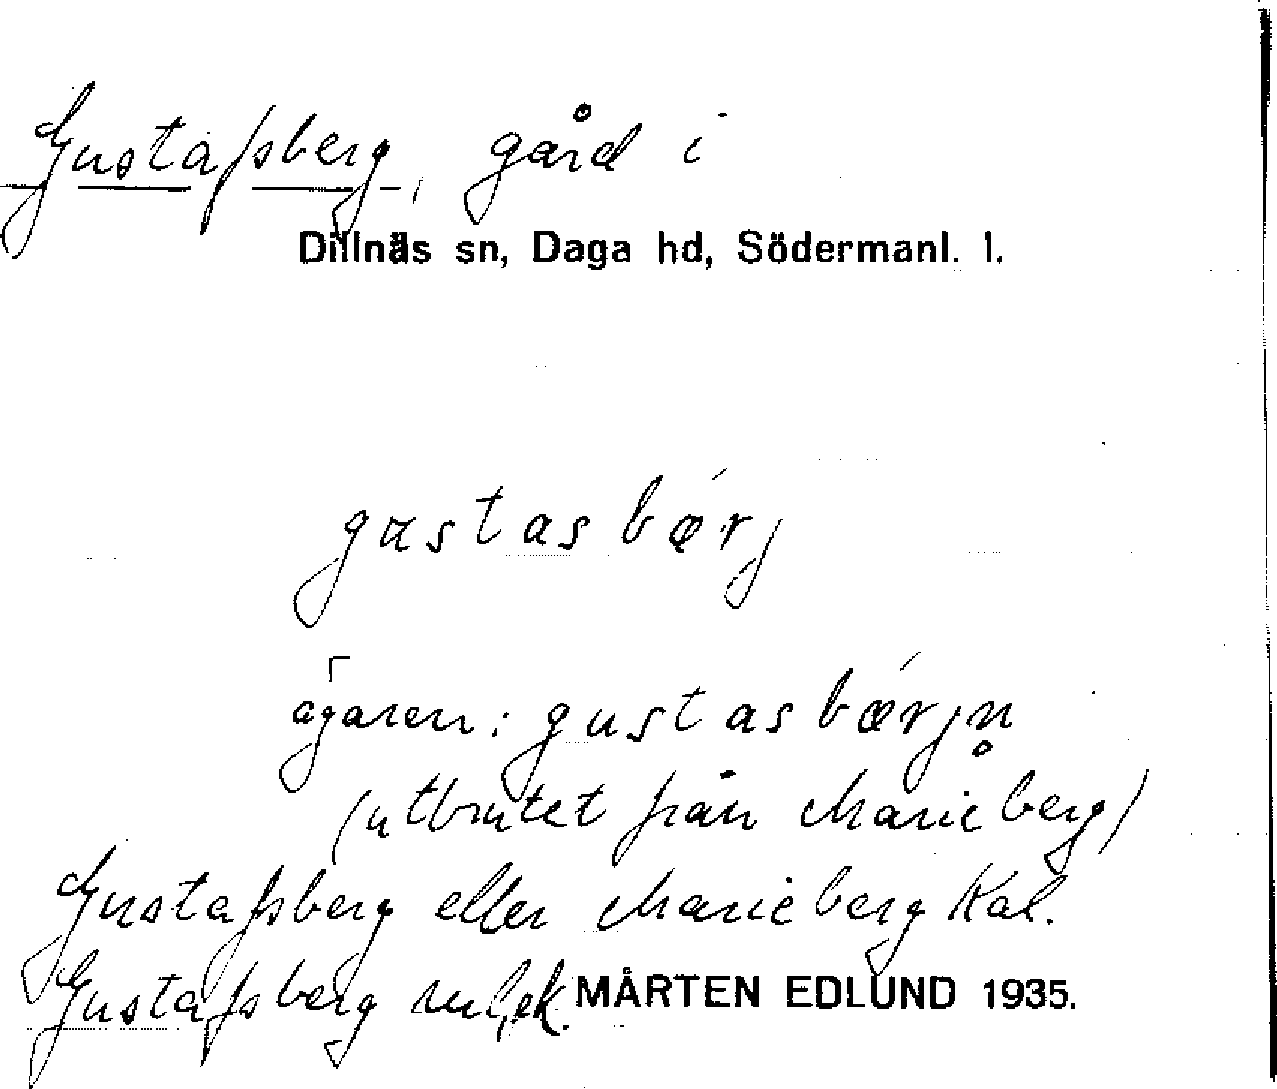 Gustafsberg, gård i
Dillnäs sn, Daga hd, Södermanl. l.
gustasbǽrj
ägaren: gustasbǽrjn̥
(utbrutet från Marieberg)
Gustafsberg eller Marieberg Kal.
Gustafsberg
MÅRTEN EDLUND 1935.